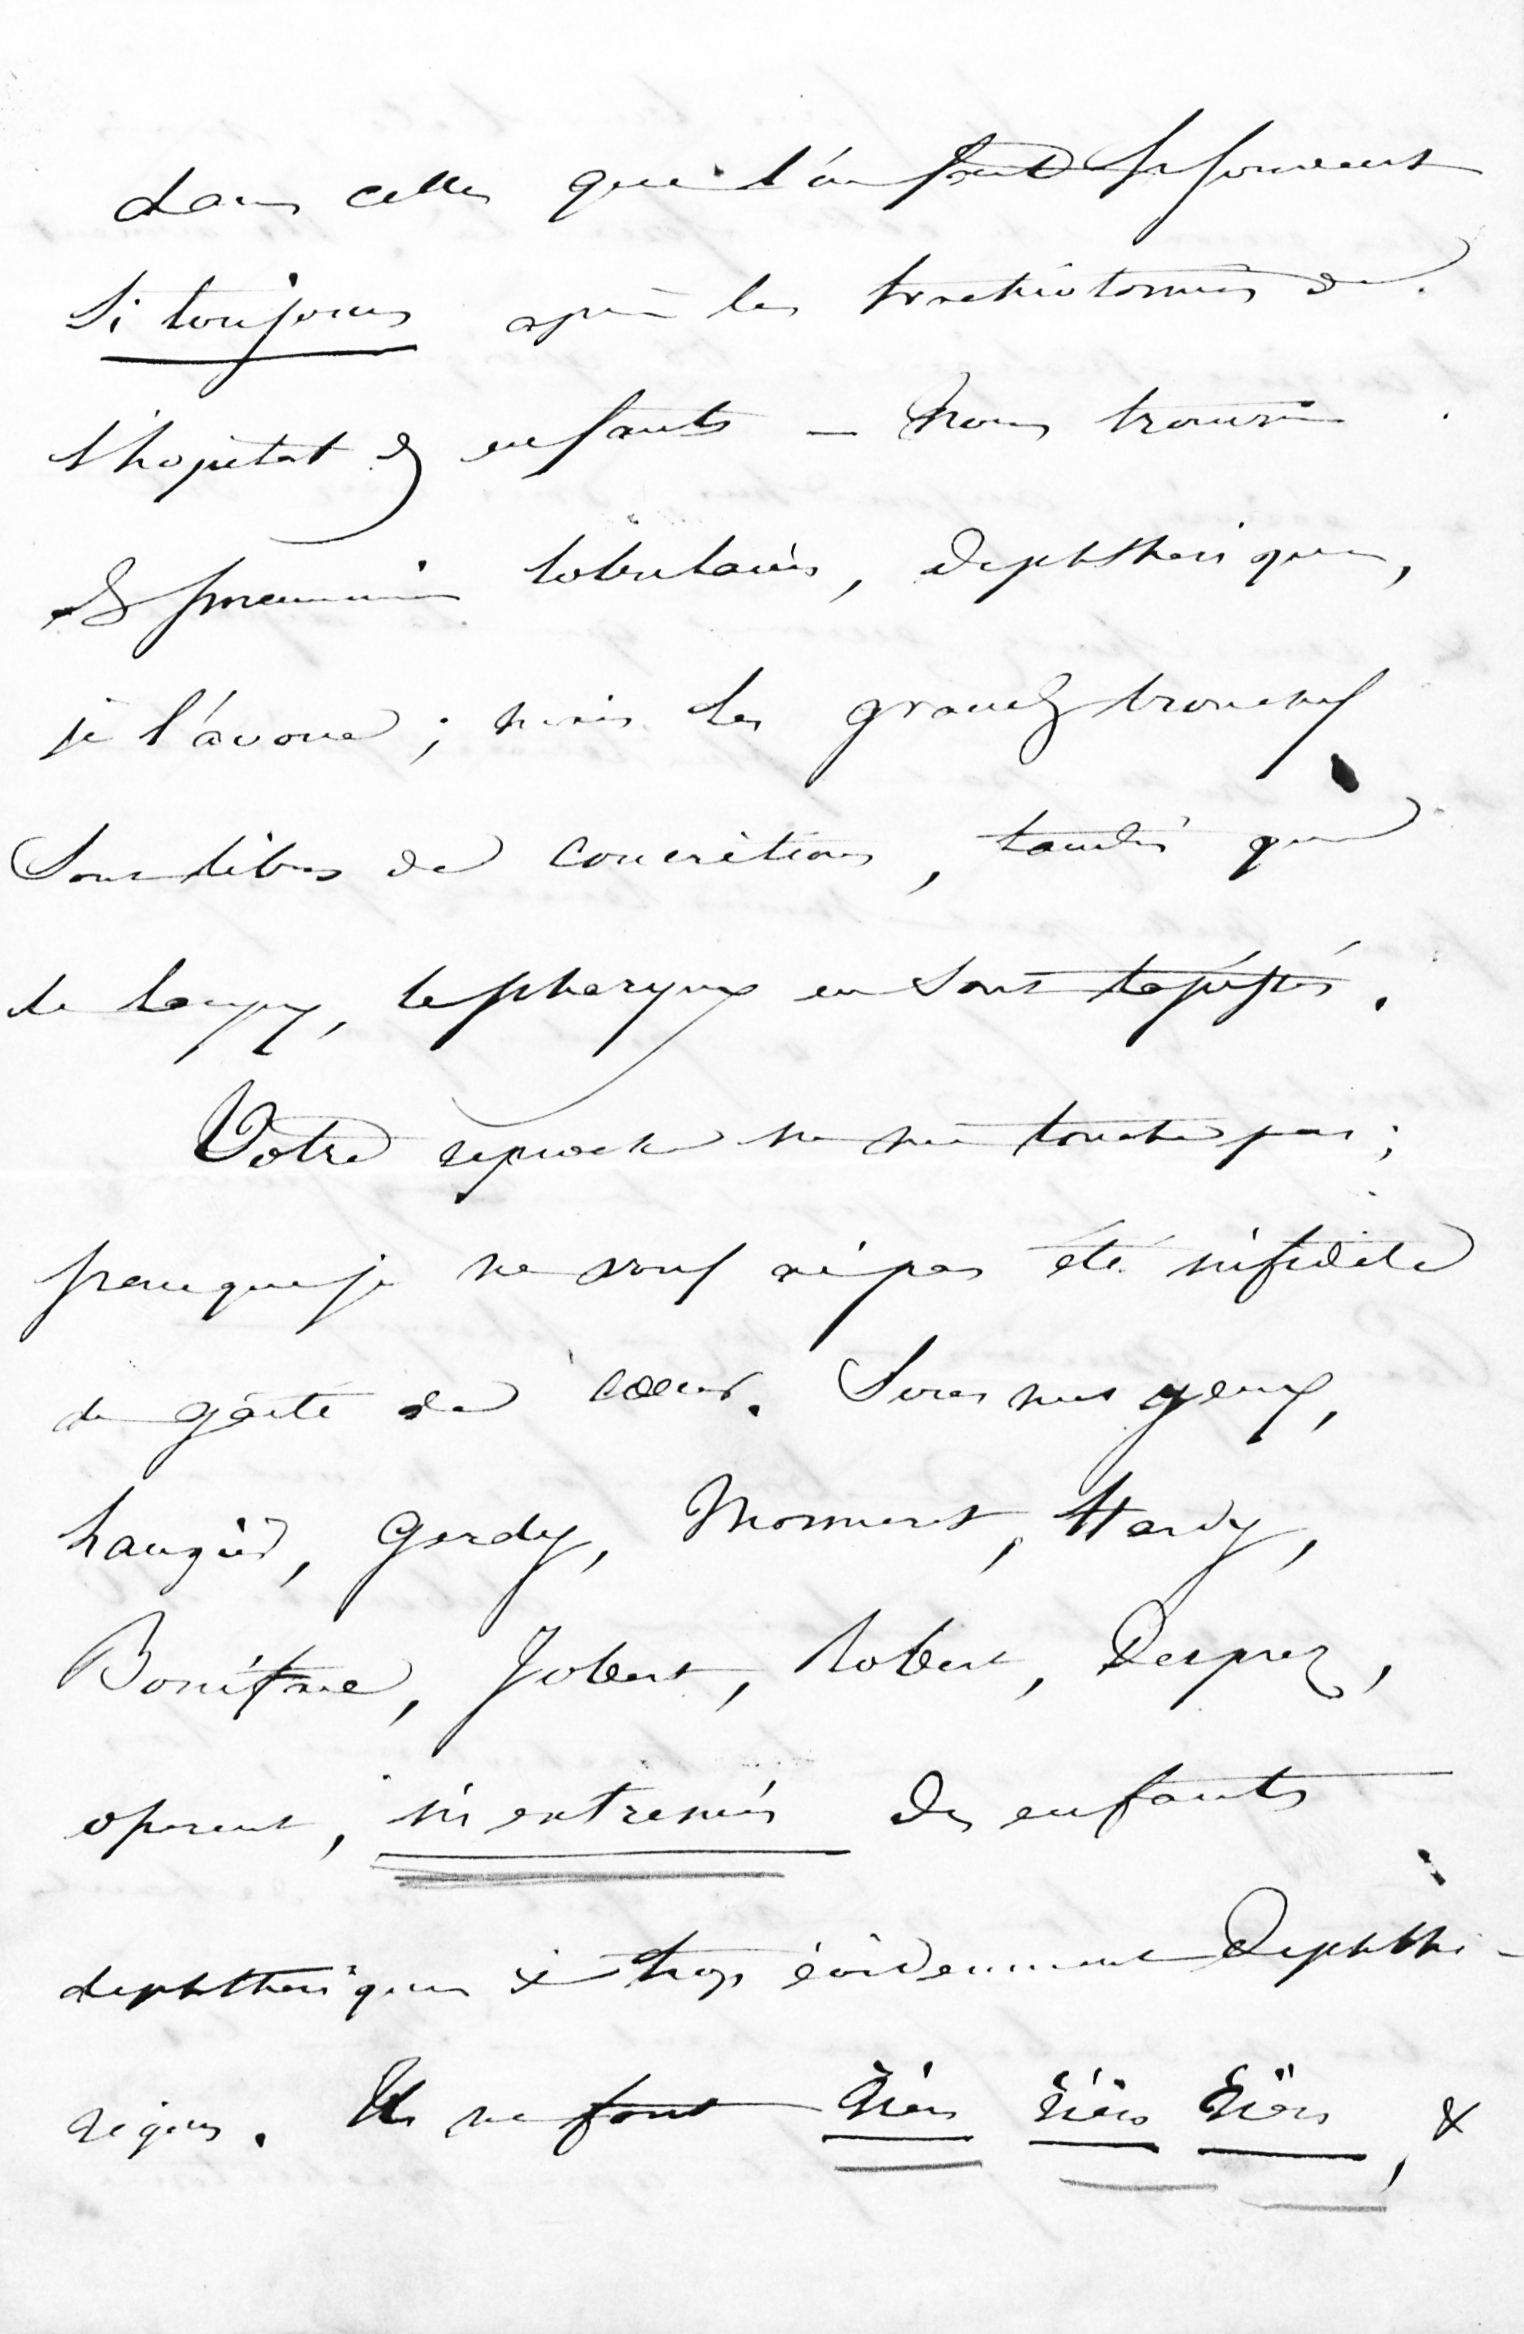 dans celles que l'on fait si souvent
si toujours après les trachéotomies de
l'hopital des enfants — nous trouvons
des pneumonies lobulaires, diphthériques,
je l'avoue ; mais les grands bronches
sont libres de concrétions, tandis que
le larynx, le pharynx en sont tapissés.
Votre reproche ne me touche pas ;
parceque je ne vous ai pas été infidèle
de gaité de cœur. Sous mes yeux,
Laugier, Gerdy, Monneret, Hardy,
Boniface, Jobert, Robert, Desprez,
operent, in extremis des enfants
diphthériques & trop évidemment diphthé-
riques. Ils ne font rien rien rien, &